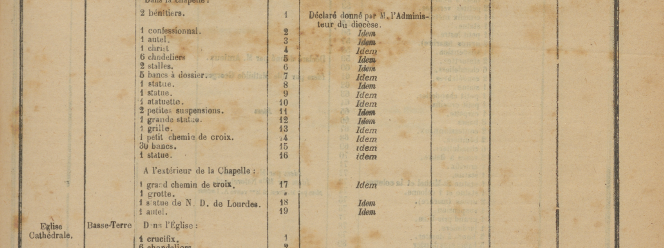 Dans la chapelle :
2 bénitiers. 1 Déclaré donné par M. l'Adminis-
teur du diocèse.
1 confessionnal. 2 Idem
1 autel. 3 Idem
1 christ 4 Idem
6 chandeliers 5 Idem
2 stalles. 6 Idem
5 bancs à dossier. 7 Idem
1 statue. 8 Idem
1 statue. 9 Idem
1 statuette. 10 Idem
2 petites suspensions. 11 Idem
1 grande statue. 12 Idem
1 grille. 13 Idem
1 petit chemin de croix. 14 Idem
30 bancs. 15 Idem
1 statue. 16 Idem
A l'extérieur de la Chapelle :
1 grand chemin de croix. 17 Idem
1 grotte.
1 statue de N. D. de Lourdes. 18 Idem
1 autel. 19 Idem
Eglise Basse-Terre Dans l'Eglise :
Cathédrale.
1 crucifix. 1
6 chandeliers 2